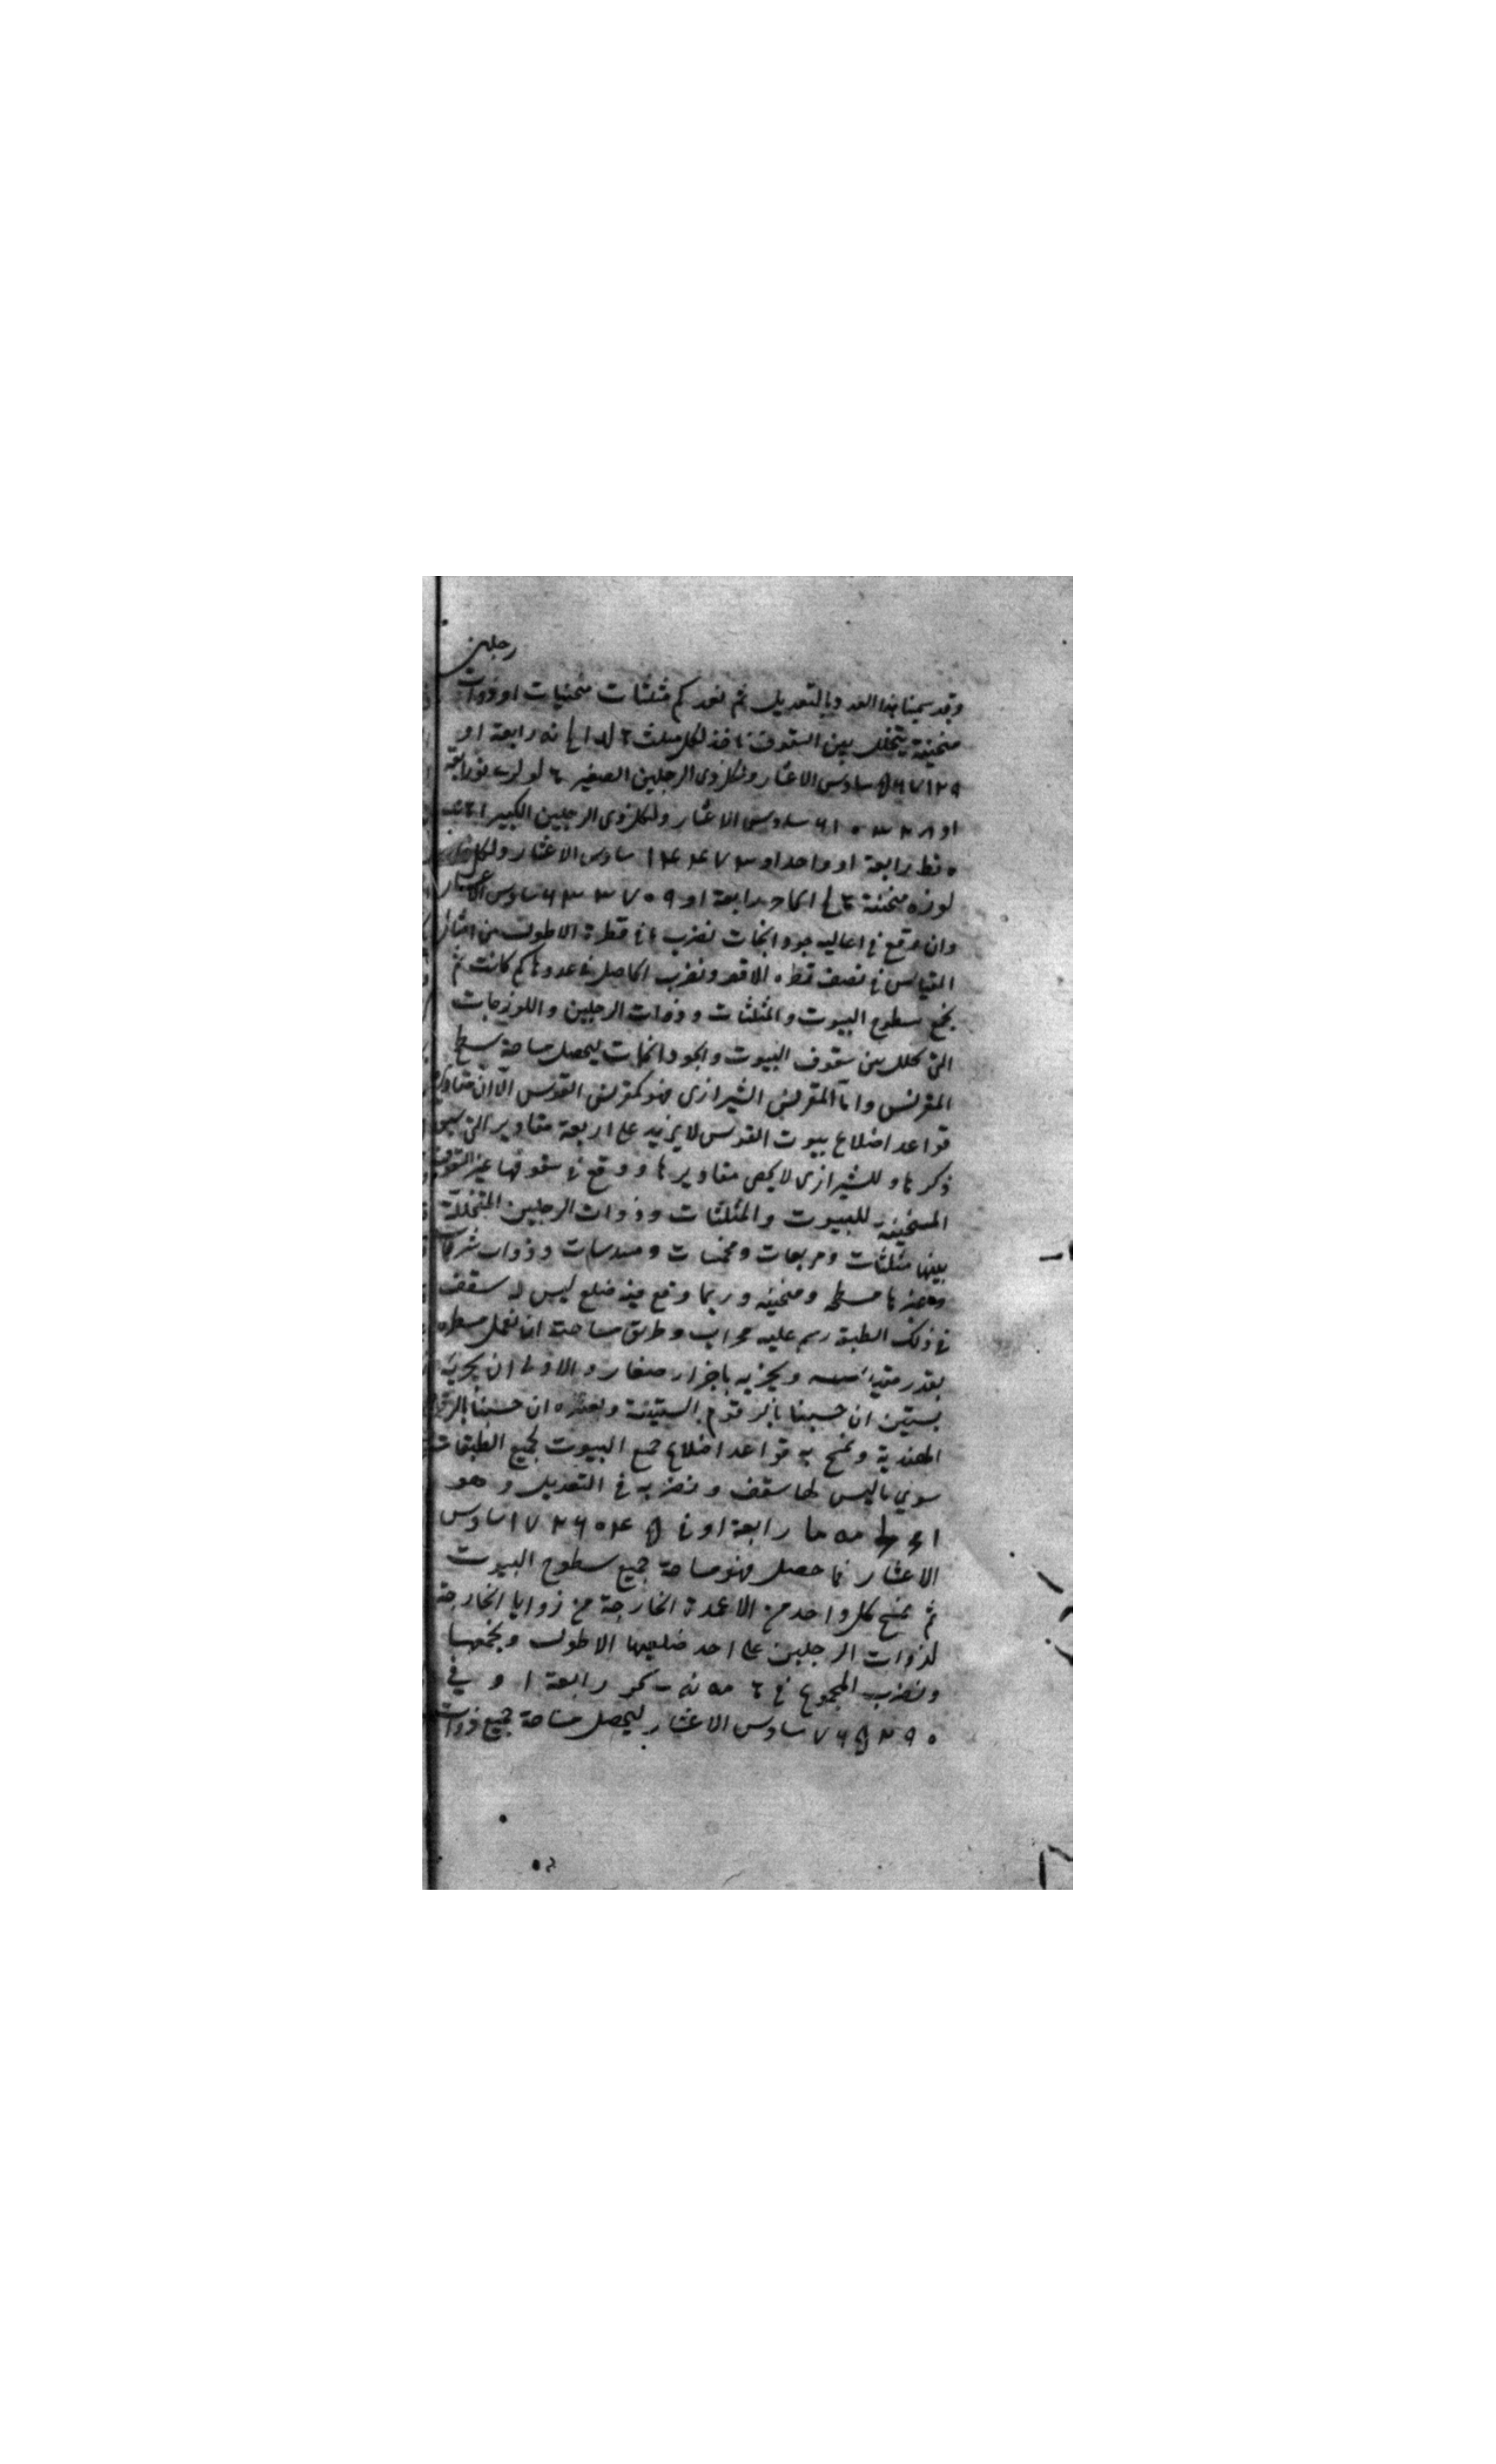 رجلين
وقد سمينا هذا العدد بالتعديل ثم نعد كم مثلثات منحنيات او ذوات
منحنية يتخلل بين السقوف فناخذ لكل مثلث رابعة او
سادس الاعشار ولكل ذى الرجلين الصغير
او سادس الاعشار ولكل ذى الرجلين الكبير
رابعة او واحدا و سادس الاعشار ولكل
لوزه منحنية رابعة او سادس الاعشار
وان وقع فى اعاليه جودانجات نضرب قطره الاطول من امثال
المقياس فى نصف قطره الاقصر ونضرب الحاصل فى عددها كم كانت ثم
نجمع سطوح البيوت والمثلثات وذوات الرجلين واللوزجات
التى تخلل بين سقوف البيوت والجودانجات ليحصل مساحة سطح
المقرنس واما المقرنس الشيرازى فهو كمقرنس القوس الا ان مقادير
قواعد اضلاع بيوت القوس لا يزيد على اربعة مقادير التى سبق
ذكرها وللشيرازى لا يحصى مقاديرها ووقع فى سقوفها غير السقوف
المنحنية للبيوت والمثلثات وذوات الرجلين المتخللة
بينها مثلثات ومربعات ومخمسات ومسدسات وذوات شرفات
وغيرها مسطحة ومنحنية وربما وقع فيه ضلع ليس له سقف
فى ذلك الطبق رسم عليه محراب وطريق مساحته ان نعمل مسطره
بقدر مقياسه ويجزيه باجزاء صغار والاولى ان يجزيه
بستين ان حسبنا بالرقوم الستينية وبعشره ان حسبنا بالرقوم
الهندية ونمسح به قواعد اضلاع جميع البيوت لجميع الطبقات
سوى ما ليس لها سقف ونضربه فى التعديل وهو
رابعة او فى سادس
الاعشار فما حصل فهو مساحة جميع سطوح البيوت
ثم نمسح كل واحد من الاعمدة الخارجة من زوايا الخارجة
لذوات الرجلين على احد ضلعيها الاطول ونجمعها
ونضرب المجموع فى رابعة او فى
سادس الاعشار ليحصل مساحة جميع ذوات